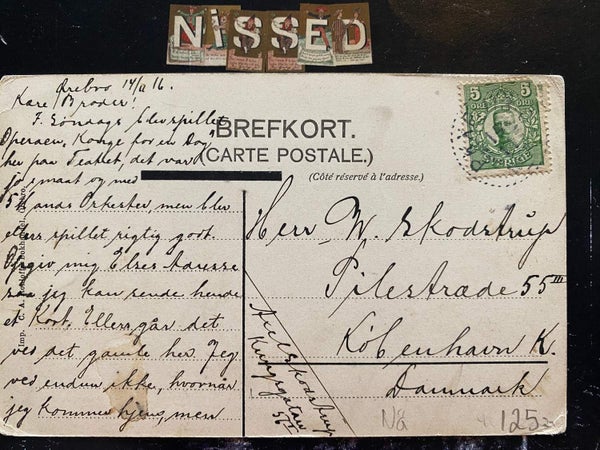 NiSSED
Örebro 14/11 16.
Kære Broder!
I Søndags blev spillet
Operaen, Konge for en Dag
her paa Teatret, det var
for smaat og med
5 Mands Orkester, men blev
ellers spillet rigtig godt.
Opgiv mig Elses Adresse
saa jeg kan sende hende
et Kort. Ellers går det
ved det gamle her. Jeg
ved endnu ikke, hvornår
jeg kommer hjem, men
BREFKORT.
(CARTE POSTALE.)
(Côté réservé à l'adresse.)
5 5
ÖRE ÖRE
SVERIGE
Herr W. Skodstrup
Pilestræde 55 III
København K.
Danmark
Skodstrup
Kungsgatan
Imp. Örebro.
125